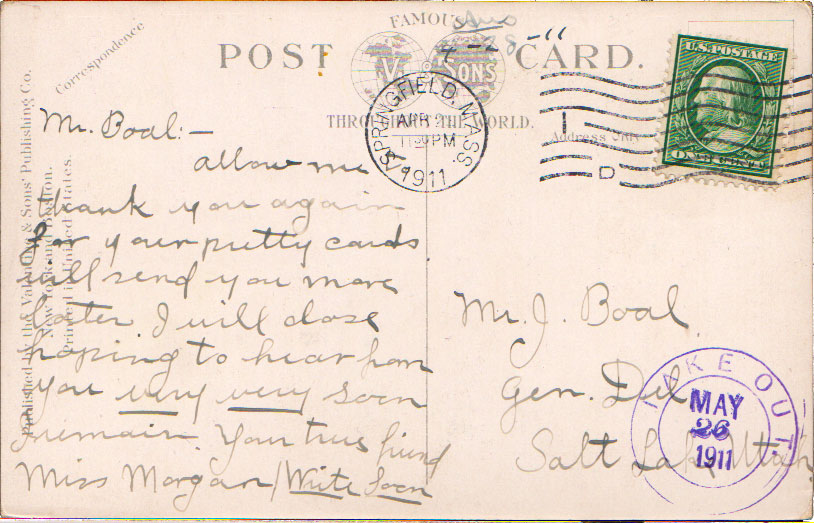 Correspondence
FAMOUS
4-28-11
POST CARD.
V & SONS
THROUGHOUT THE WORLD.
SPRINGFIELD, MASS.
APR 2
11 30 PM
1911
Address Only
D
U.S. POSTAGE
ONE CENT
Published by the Valentine & Sons' Publishing Co.
New York and Boston.
Printed in United States.
Mr. Boal:-
allow me to
thank you again
for your pretty cards
will send you more
later I will close
hoping to hear from
you very very soon
I remain. Your true friend
Miss Morgan / Write Soon
Mr. J. Boal
Gen. Del
Salt Lake Utah
TAKE OUT.
MAY
26
1911